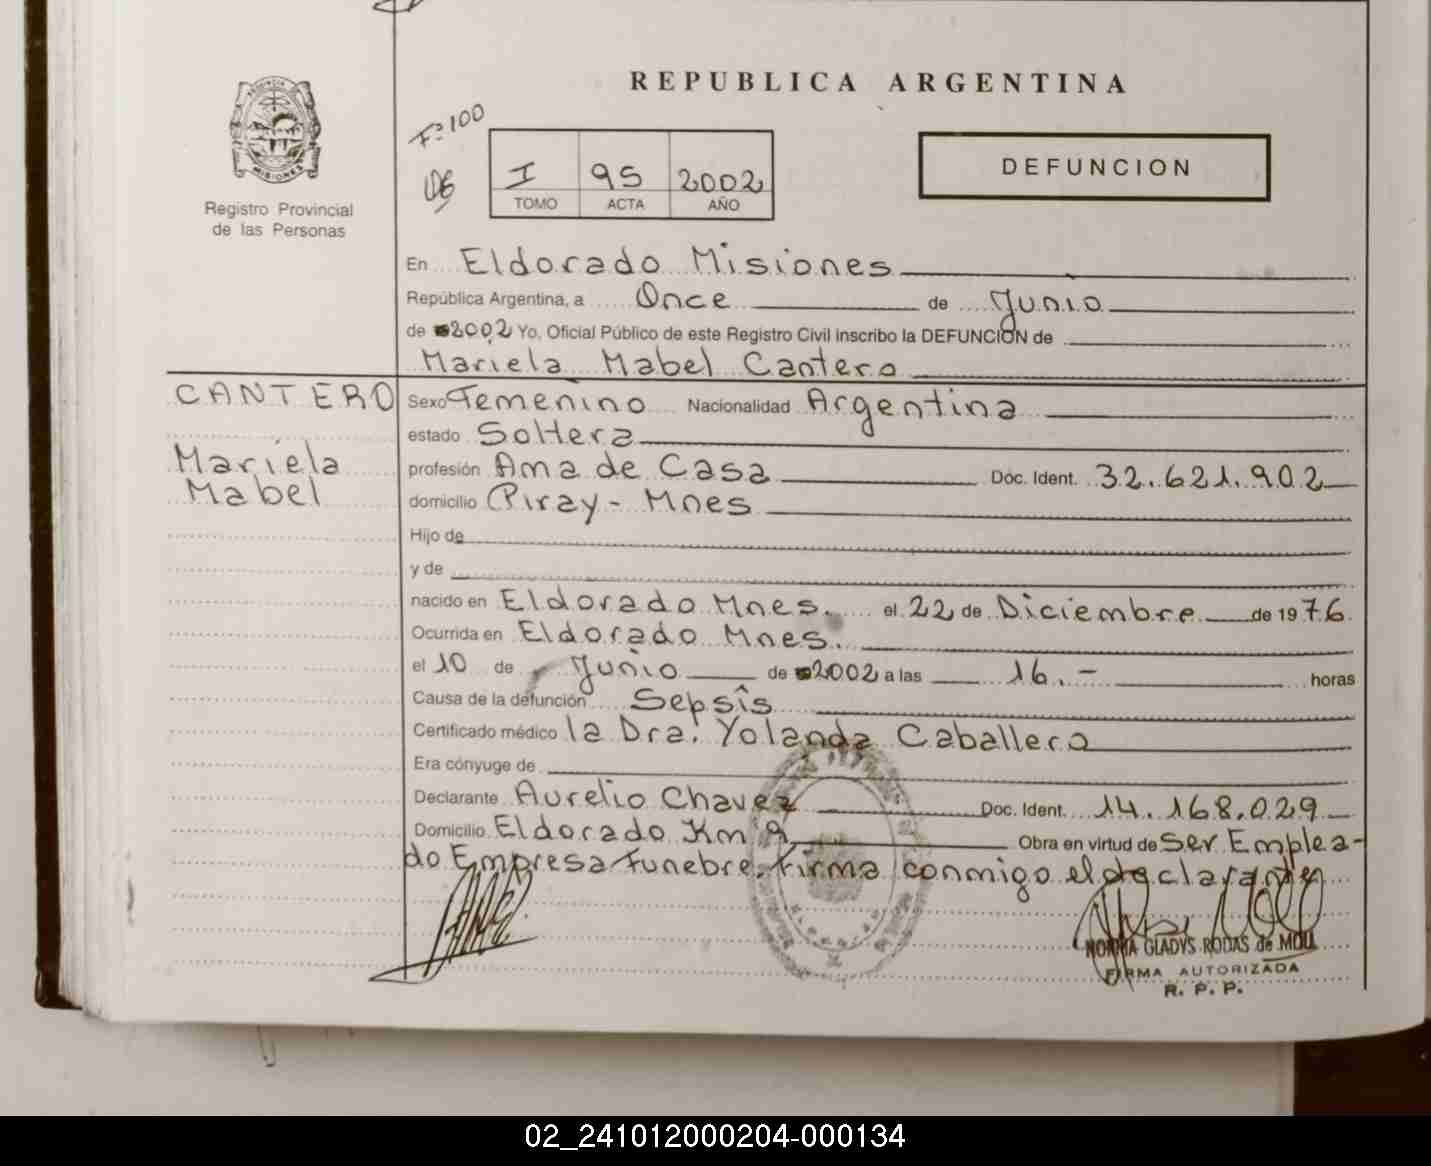 REPUBLICA ARGENTINA
Fº 100
I 95 2002
TOMO ACTA AÑO
DEFUNCION
PROVINCIA DE MISIONES
Registro Provincial
de las Personas
En Eldorado Misiones
República Argentina, a Once de Junio
de 2002 Yo, Oficial Público de este Registro Civil inscribo la DEFUNCIÓN de
Mariela Mabel Cantero
CANTERO
Mariela
Mabel
Sexo Femenino Nacionalidad Argentina
estado Soltera
profesión Ama de Casa Doc. Ident. 32.621.902
domicilio Piray - Mnes
Hijo de
y de
nacido en Eldorado Mnes. el 22 de Diciembre de 1976.
Ocurrida en Eldorado Mnes.
el 10 de Junio de 2002 a las 16.- horas
Causa de la defunción Sepsis
Certificado médico la Dra. Yolanda Caballero
Era cónyuge de
Declarante Aurelio Chavez Doc. Ident. 14.168.029
Domicilio Eldorado Km 9 Obra en virtud de Ser Emplea-
do Empresa Funebre. Firma conmigo el declarante
NORMA GLADYS RODAS de MOLL
FIRMA AUTORIZADA
R. P. P.
02_241012000204-000134